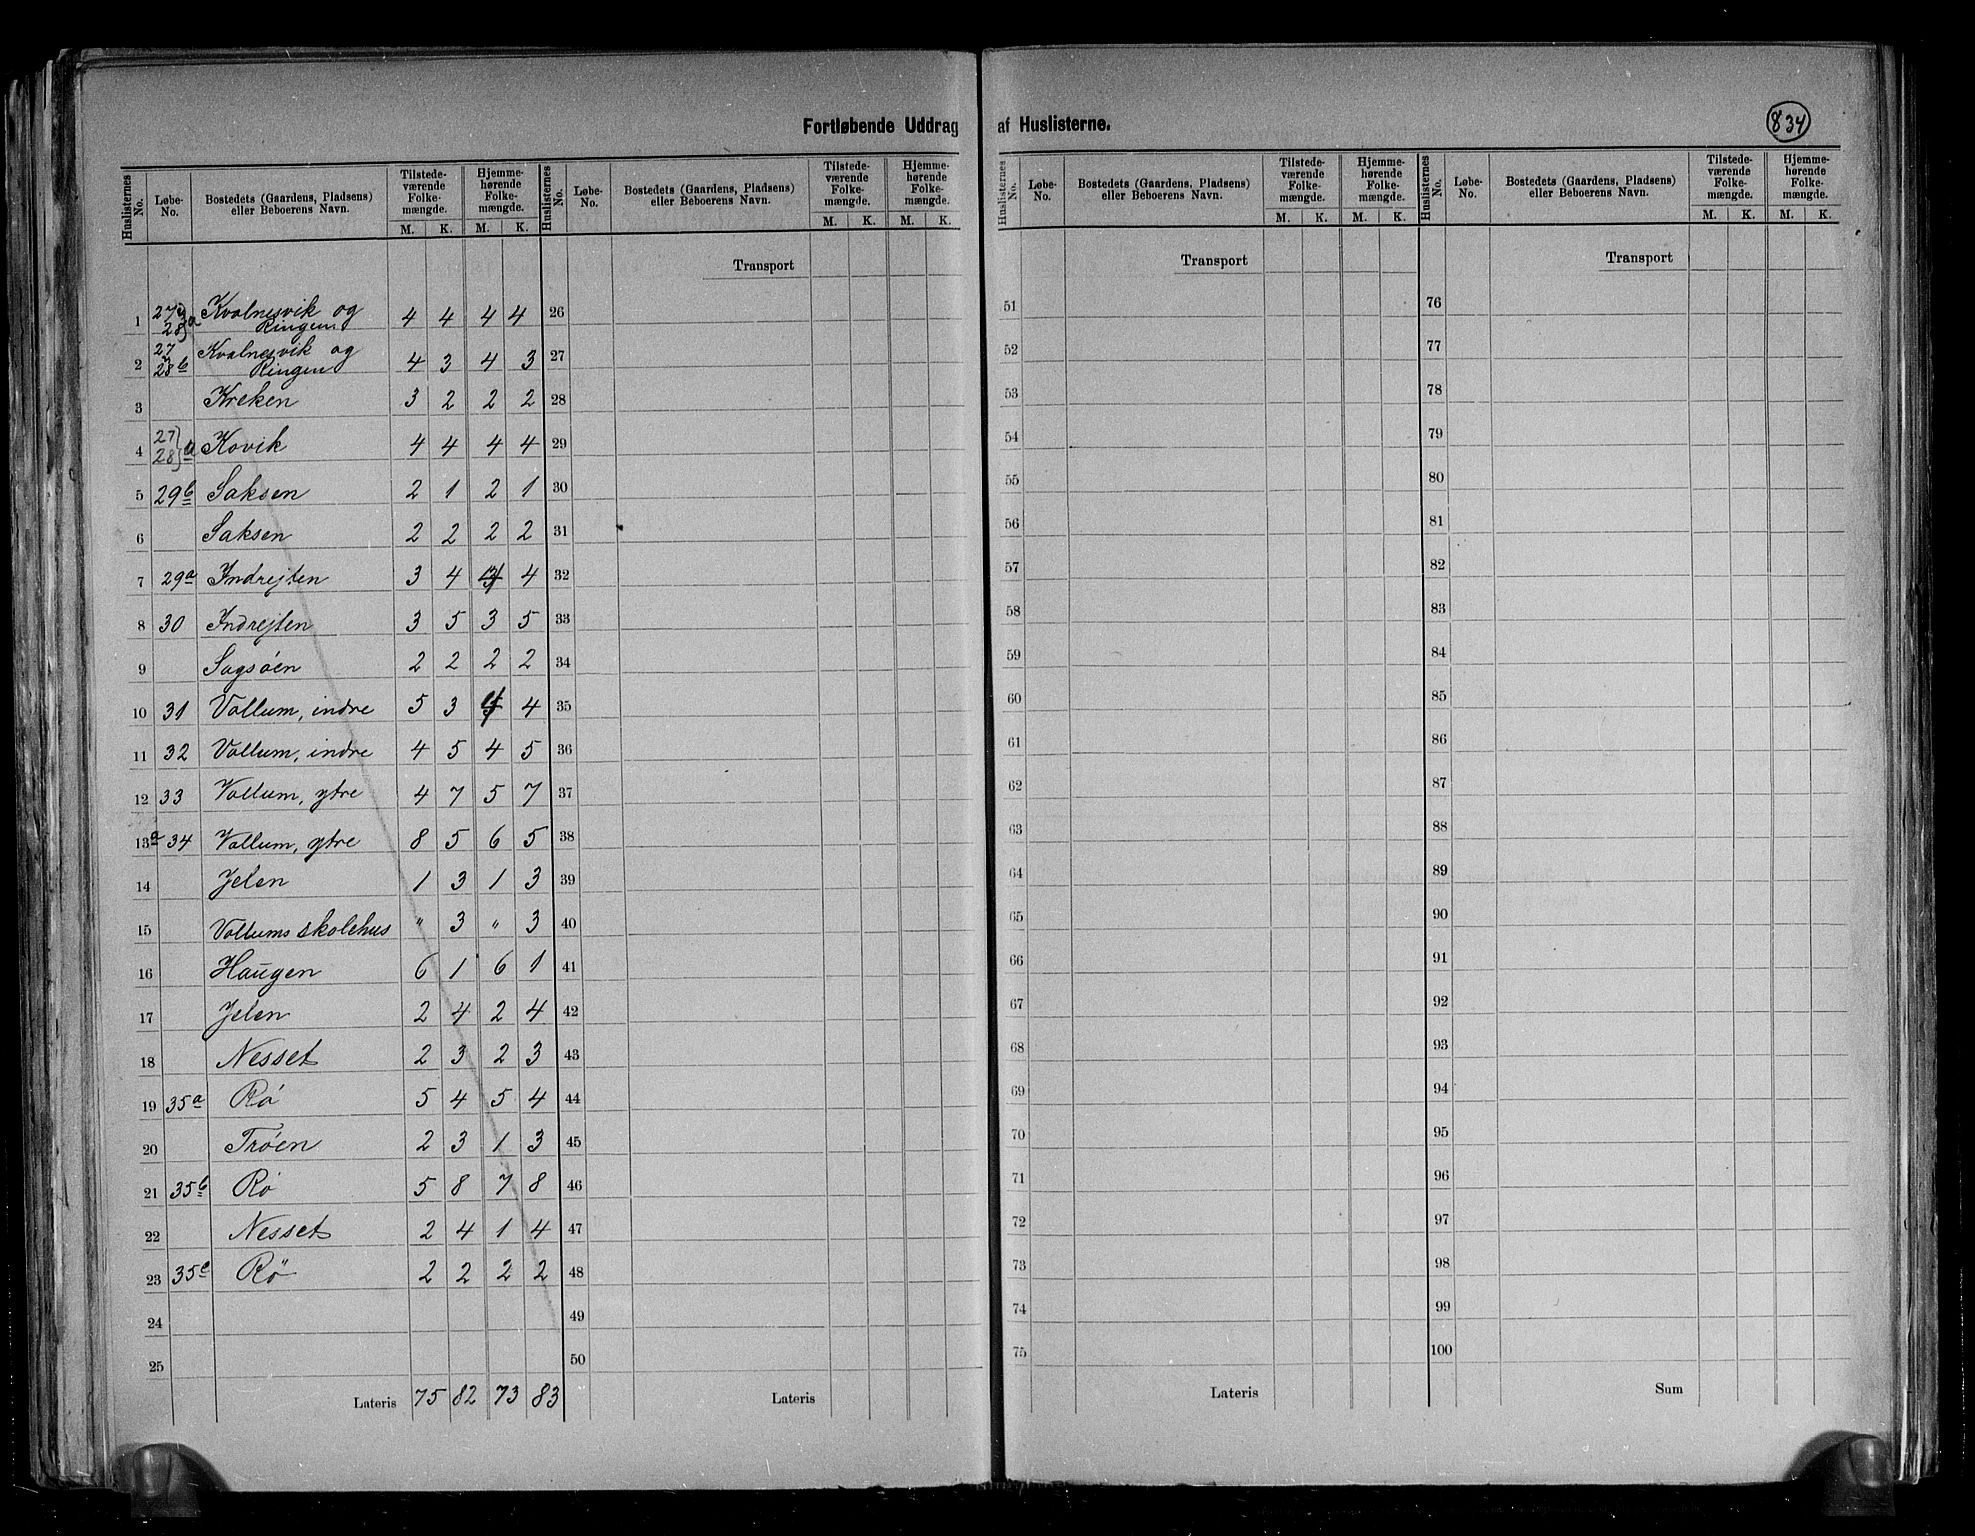 Fortløbende Uddrag af Huslisterne.
834
Huslisternes No. Løbe-No. Bostedets (Gaardens, Pladsens) eller Beboerens Navn. Tilstede-værende Folke-mængde. M. K. Hjemme-hørende Folke-mængde. M. K.
Huslisternes No. Løbe-No. Bostedets (Gaardens, Pladsens) eller Beboerens Navn. Tilstede-værende Folke-mængde. M. K. Hjemme-hørende Folke-mængde. M. K.
Huslisternes No. Løbe-No. Bostedets (Gaardens, Pladsens) eller Beboerens Navn. Tilstede-værende Folke-mængde. M. K. Hjemme-hørende Folke-mængde. M. K.
Huslisternes No. Løbe-No. Bostedets (Gaardens, Pladsens) eller Beboerens Navn. Tilstede-værende Folke-mængde. M. K. Hjemme-hørende Folke-mængde. M. K.
Transport Transport Transport
1 27 28}a Kvalnesvik og Ringen 4 4 4 4 26 51 76
2 27 28b Kvalnesvik og Ringen 4 3 4 3 27 52 77
3 Kreken 3 2 2 2 28 53 78
4 27 28}a Kovik 4 4 4 4 29 54 79
5 29b Saksen 2 1 2 1 30 55 80
6 Saksen 2 2 2 2 31 56 81
7 29a Indrejten 3 4 4 32 57 82
8 30 Indrejten 3 5 3 5 33 58 83
9 Sagsøen 2 2 2 2 34 59 84
10 31 Vollum, indre 5 3 4 35 60 85
11 32 Vollum, indre 4 5 4 5 36 61 86
12 33 Vollum, ytre 4 7 5 7 37 62 87
13a 34 Vollum, ytre 8 5 6 5 38 63 88
14 Jelen 1 3 1 3 39 64 89
15 Vollums skolehus " 3 " 3 40 65 90
16 Haugen 6 1 6 1 41 66 91
17 Jelen 2 4 2 4 42 67 92
18 Nesset 2 3 2 3 43 68 93
19 35a Rø 5 4 5 4 44 69 94
20 Trøen 2 3 1 3 45 70 95
21 35b Rø 5 8 7 8 46 71 96
22 Nesset 2 4 1 4 47 72 97
23 35c Rø 2 2 2 2 48 73 98
24 49 74 99
25 50 75 100
Lateris 75 82 73 83 Lateris Lateris Sum